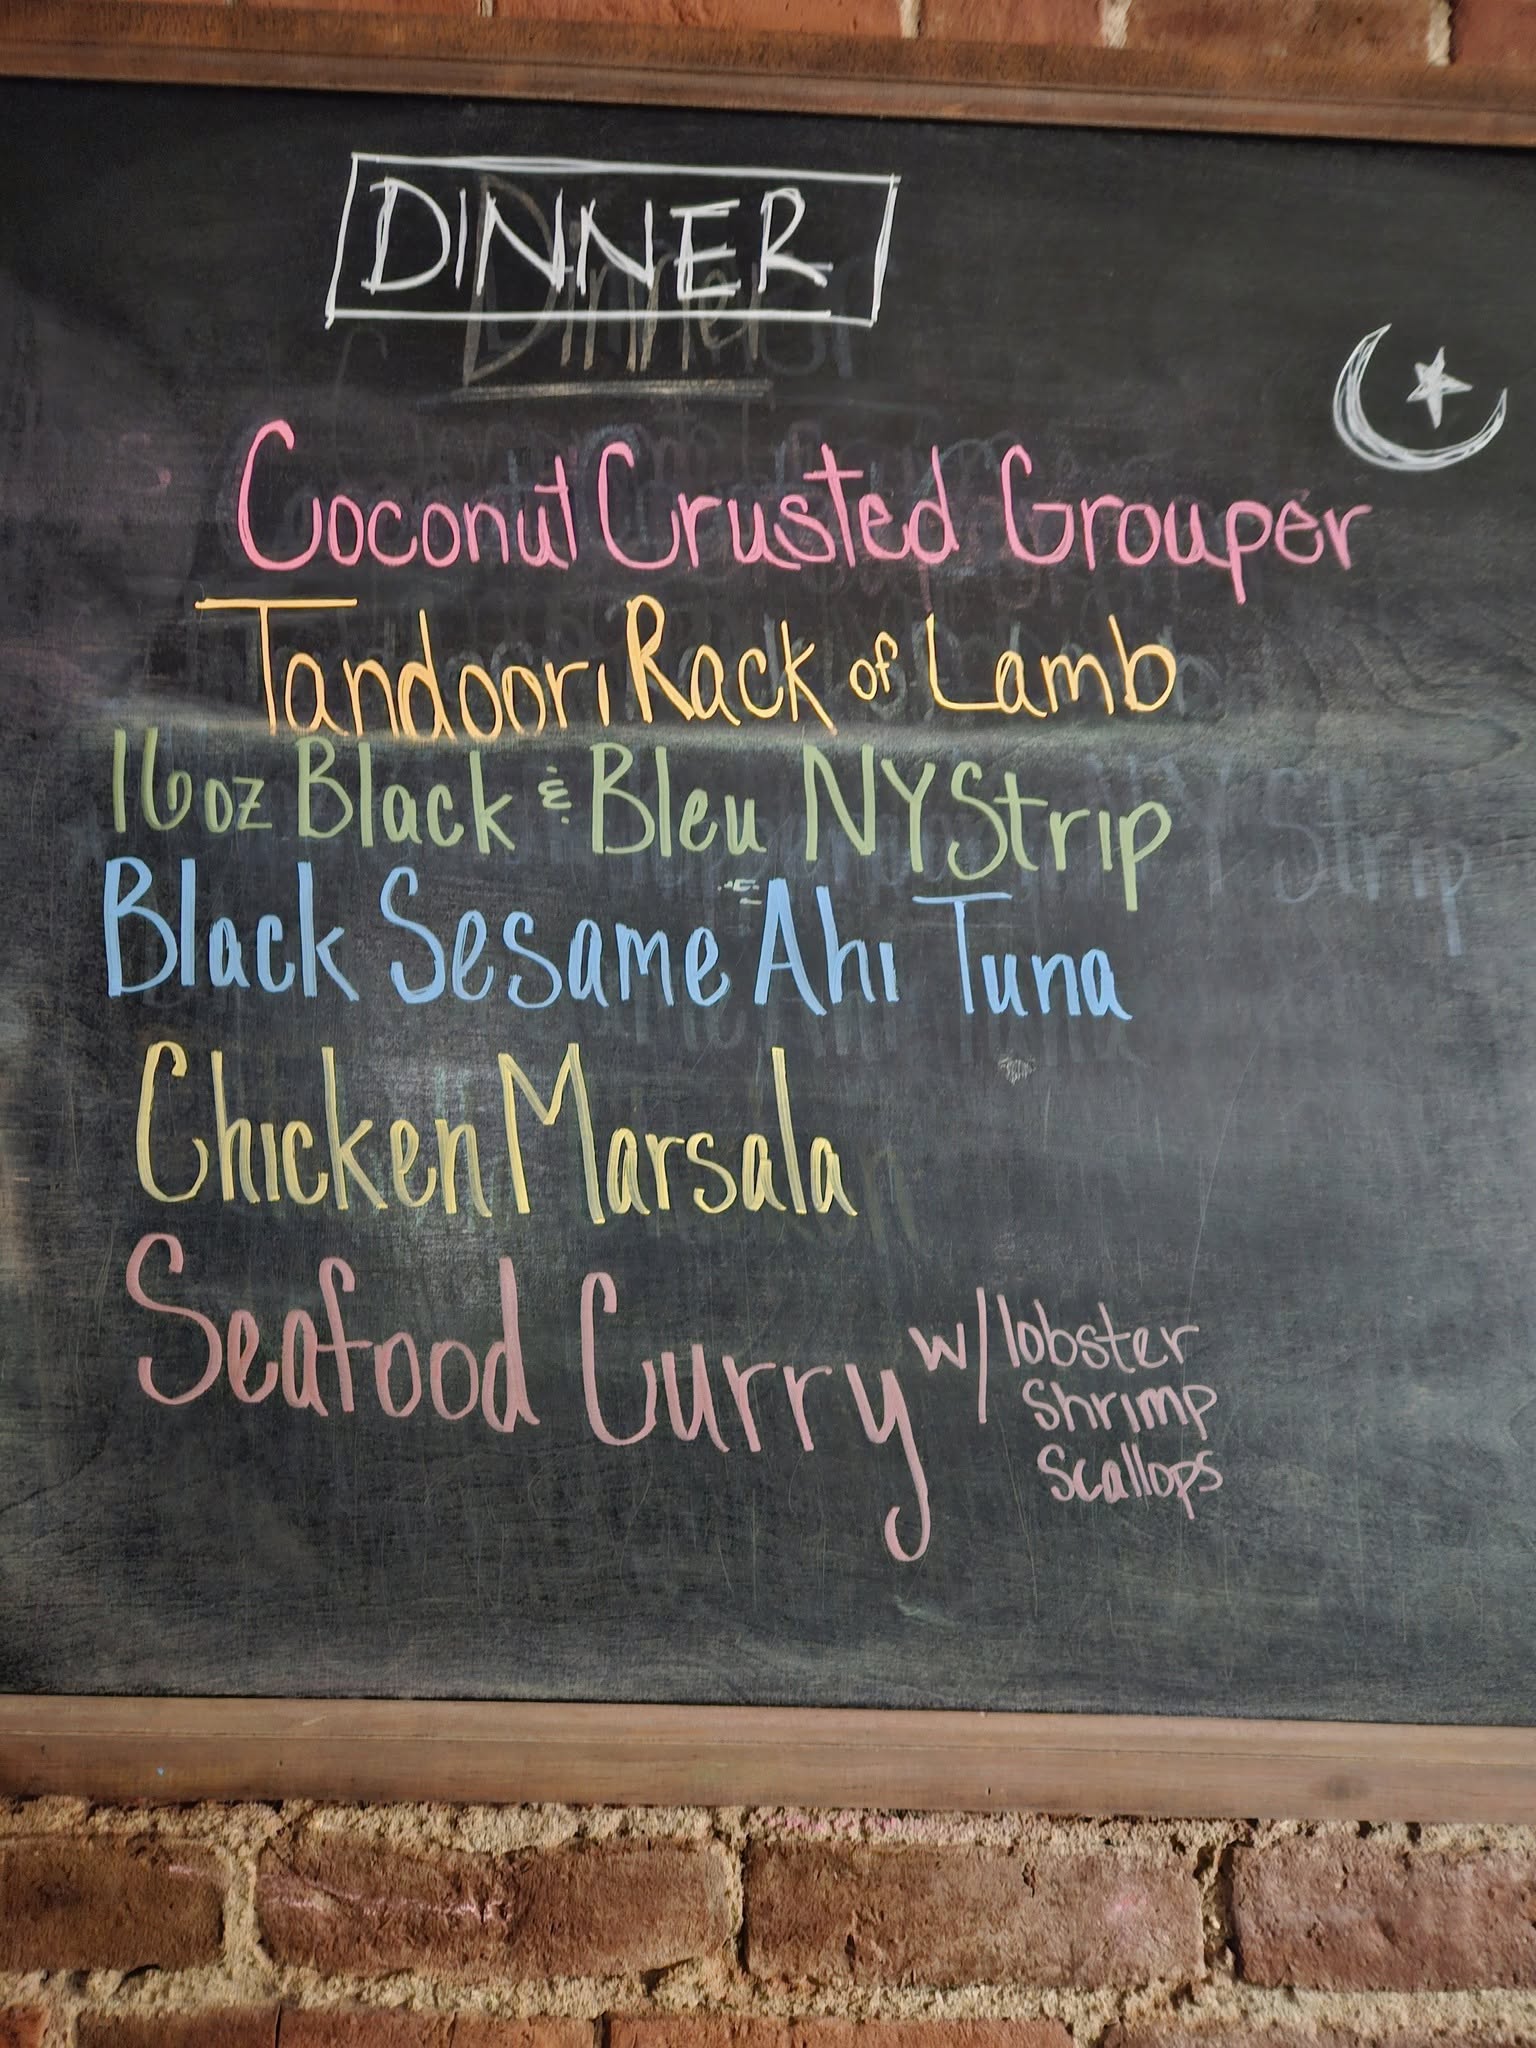 DINNER
Coconut Crusted Grouper
Tandoori Rack of Lamb
16oz Black & Bleu NY Strip
Black Sesame Ahi Tuna
Chicken Marsala
Seafood Curry w/ lobster
shrimp
scallops